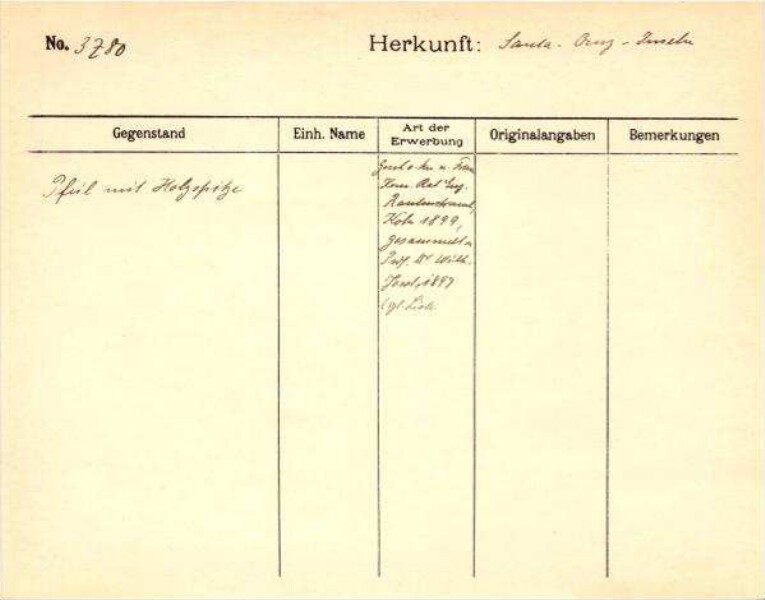 No. 3780
Herkunft: Santa-Cruz-Inseln
Gegenstand
Einh. Name
Art der Erwerbung
Originalangaben
Bemerkungen
Pfeil mit Holzspitze
Gesch. v. Hn. u. Frau
Kom. Rat Eug.
Rautenstrauch,
Köln 1899,
gesammelt v.
Prof. Dr Wilh.
Joest, 1897